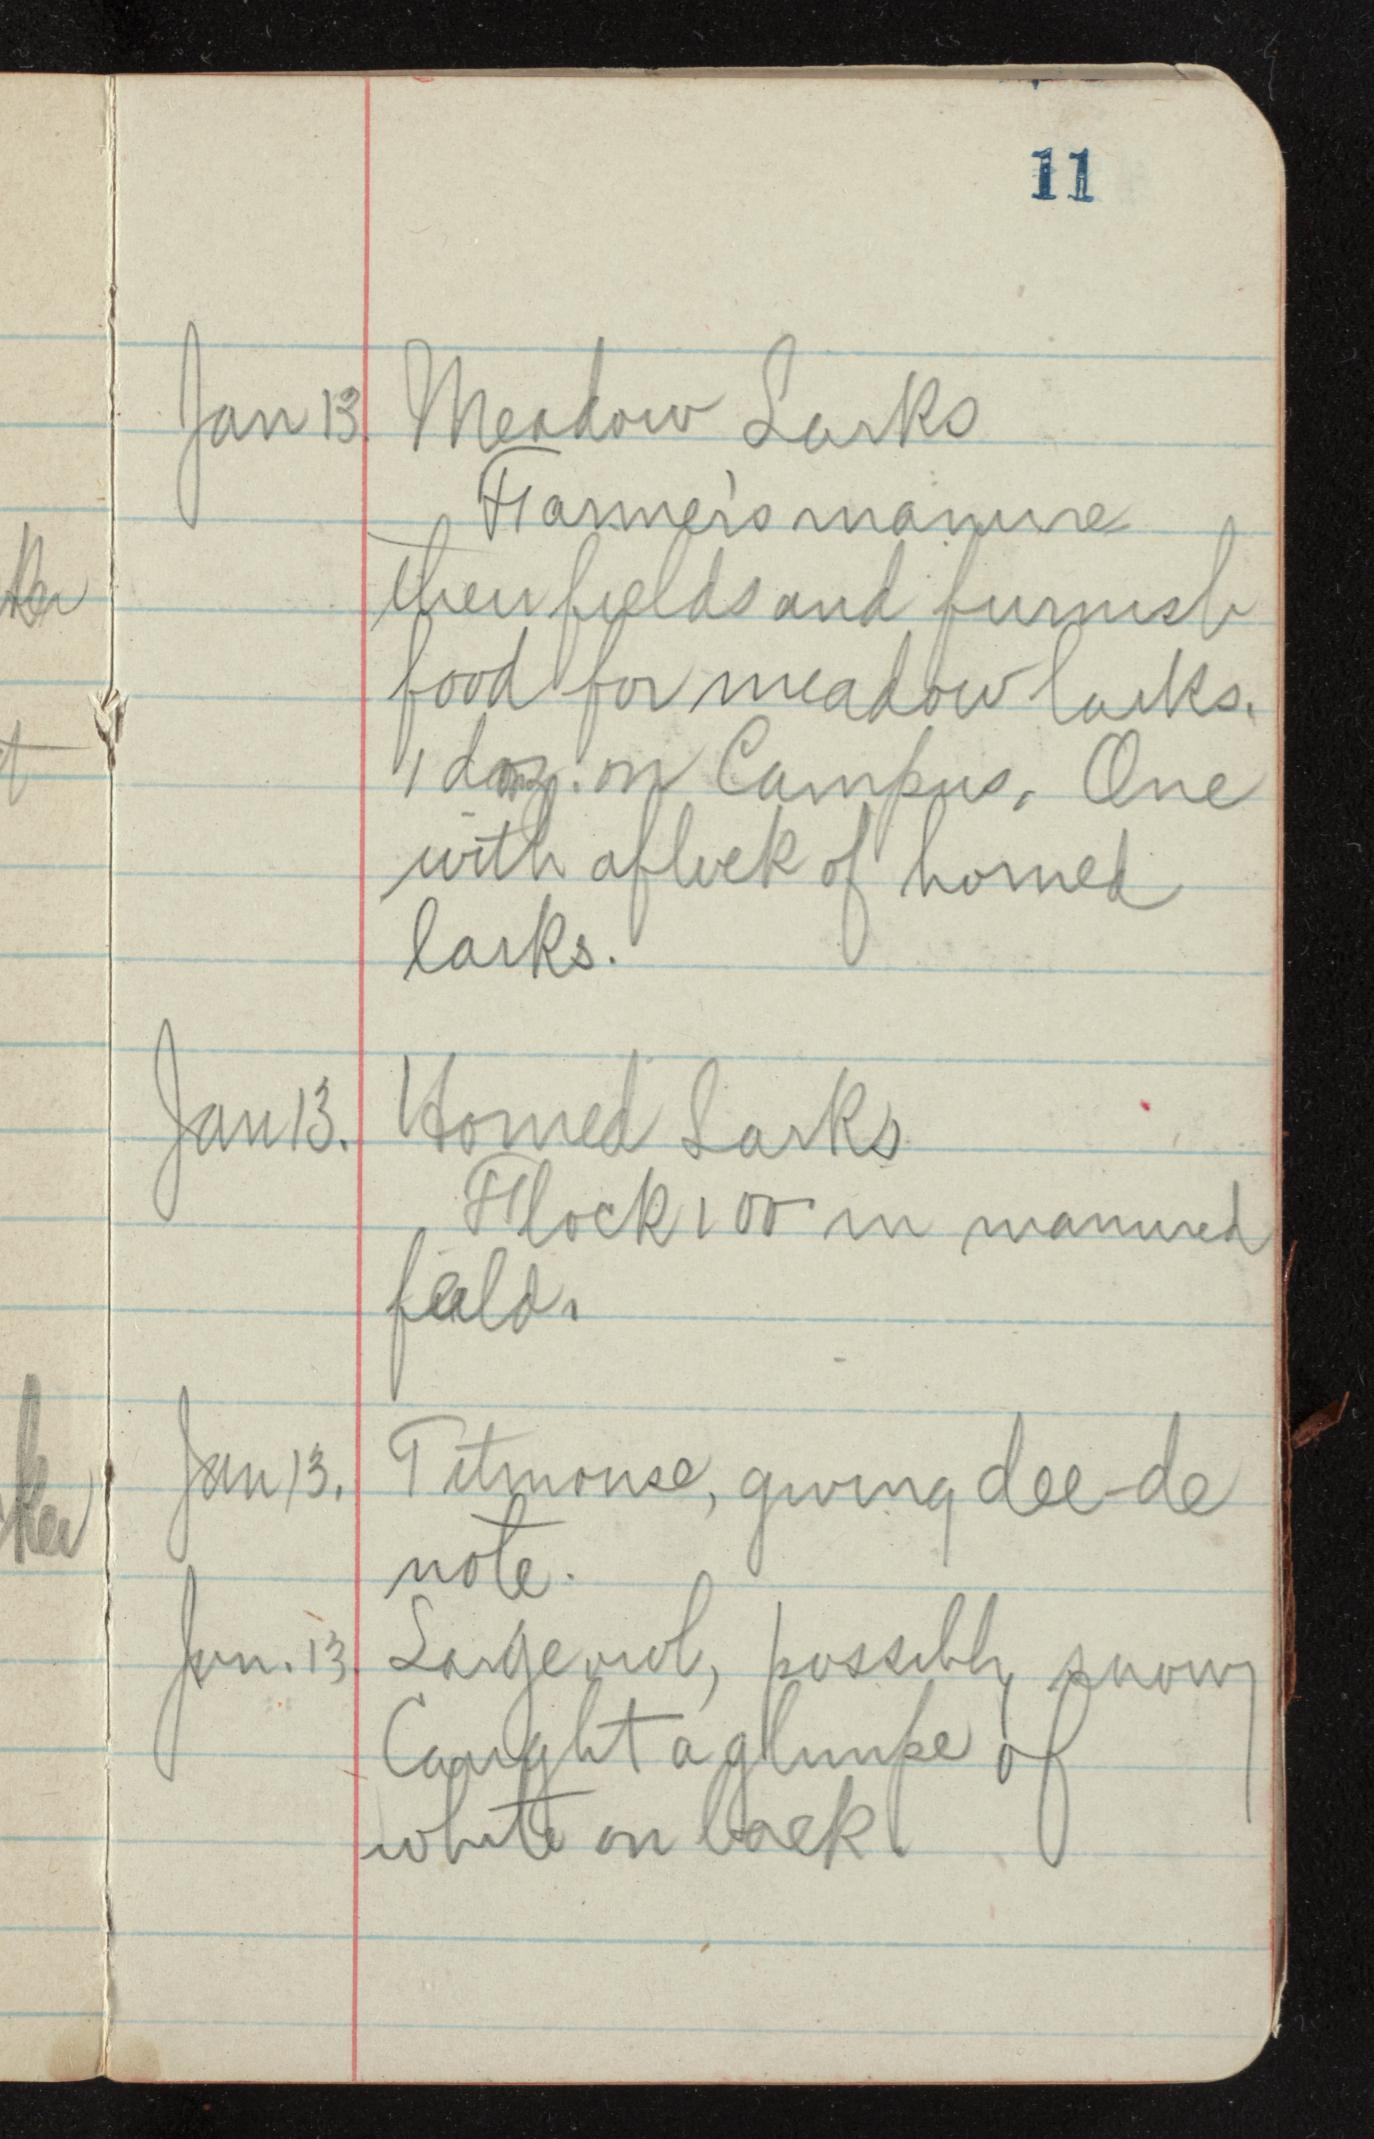 11
Jan 13. Meadow Larks
Farmer's manure
their fields and furnish
food for meadow larks.
1 doz. on Campus. One
with a flock of horned
larks.
Jan 13. Horned Larks
Flock 100 in manured
field.
Jan 13. Titmouse, giving dee-de
note.
Jan. 13. Large owl, possibly snowy
Caught a glimpse of
white on back.